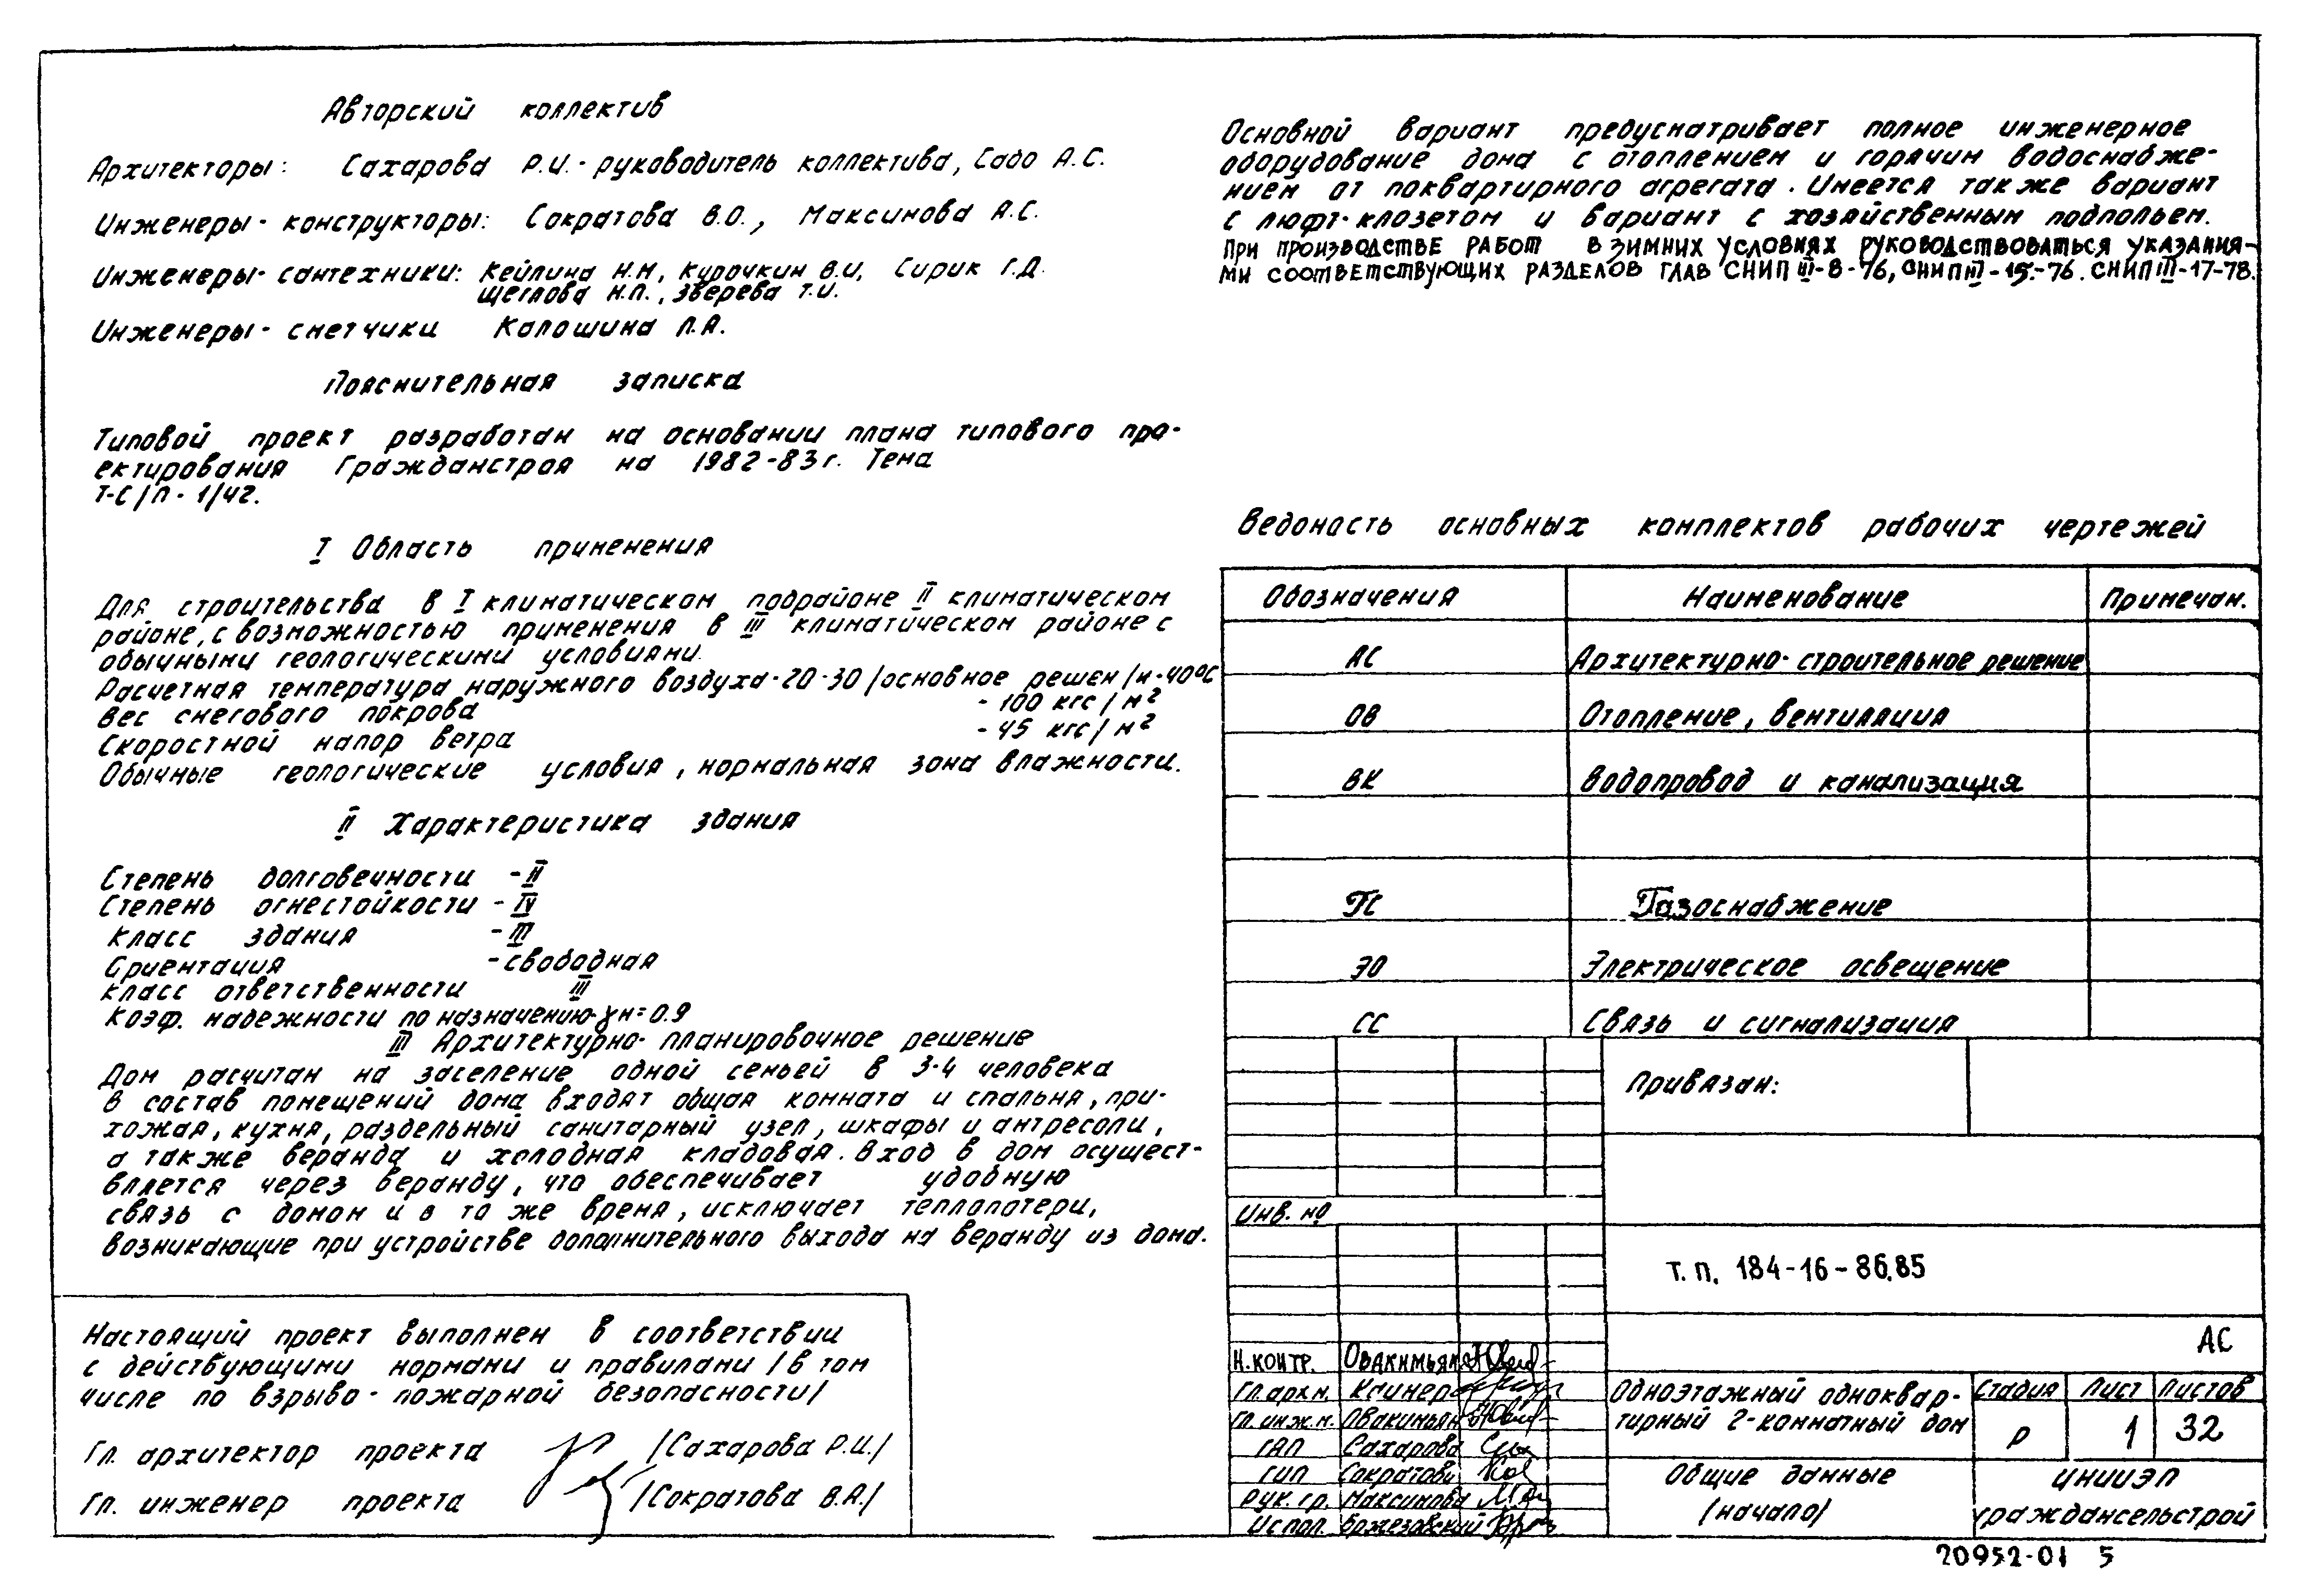 Авторский коллектив
Архитекторы: Сахарова Р.И.- руководитель коллектива, Садо А.С.
Инженеры- конструкторы: Сократова В.О., Максимова А.С.
Инженеры- сантехники: Кейлина Н.М, Курочкин В.И, Сирик Г.Д.
Щеглова Н.П., Зверева Т.И.
Инженеры- сметчики Калошина Л.А.
Пояснительная записка
Типовой проект разработан на основании плана типового про-
ектирования Гражданстроя на 1982-83г. Тема
Т-С/П- 1/42.
I Область применения
Для строительства в I климатическом подрайоне II климатическом
районе, с возможностью применения в III климатическом районе с
обычными геологическими условиями.
Расчетная температура наружного воздуха-20-30/основное решен/и-40°С
Вес снегового покрова - 100 кгс/м²
Скоростной напор ветра - 45 кгс/м²
Обычные геологические условия, нормальная зона влажности.
II Характеристика здания
Степень долговечности -II
Степень огнестойкости -IV
Класс здания -III
Ориентация -свободная
Класс ответственности III
Коэф. надежности по назначению-γн=0.9
III Архитектурно- планировочное решение
Дом расчитан на заселение одной семьей в 3-4 человека
В состав помещений дома входят общая комната и спальня, при-
хожая, кухня, раздельный санитарный узел, шкафы и антресоли,
а также веранда и холодная кладовая. Вход в дом осущест-
вляется через веранду, что обеспечивает удобную
связь с домом и в то же время, исключает теплопотери,
возникающие при устройстве дополнительного выхода на веранду из дома.
Настоящий проект выполнен в соответствии
с действующими нормами и правилами /в том
числе по взрыво- пожарной безопасности/
Гл. архитектор проекта /Сахарова Р.И./
Гл. инженер проекта /Сократова В.А./
Основной вариант предусматривает полное инженерное
оборудование дома с отоплением и горячим водоснабже-
нием от поквартирного агрегата. Имеется также вариант
с люфт-клозетом и вариант с хозяйственным подпольем.
При производстве работ в зимних условиях руководствоваться указания-
ми соответствующих разделов глав СНиП III-8-76, СНиП III-15-76. СНиП III-17-78.
Ведомость основных комплектов рабочих чертежей
Обозначения Наименование Примечан.
АС Архитектурно- строительное решение
ОВ Отопление, вентиляция
ВК Водопровод и канализация
ГС Газоснабжение
ЭО Электрическое освещение
СС Связь и сигнализация
Привязан:
Инв. №
Т. П. 184-16-86.85
АС
Н.контр. Овакимьян
Гл.арх.м. Кримнер
Гл.инж.м. Овакимьян
ГАП Сахарова
ГИП Сократова
Рук. гр. Максимова
Испол. Бржезовский
Одноэтажный одноквар-
тирный 2-комнатный дом
Стадия Лист Листов
Р 1 32
Общие данные
/начало/
ЦНИИЭП
граждансельстрой
20952-01 5